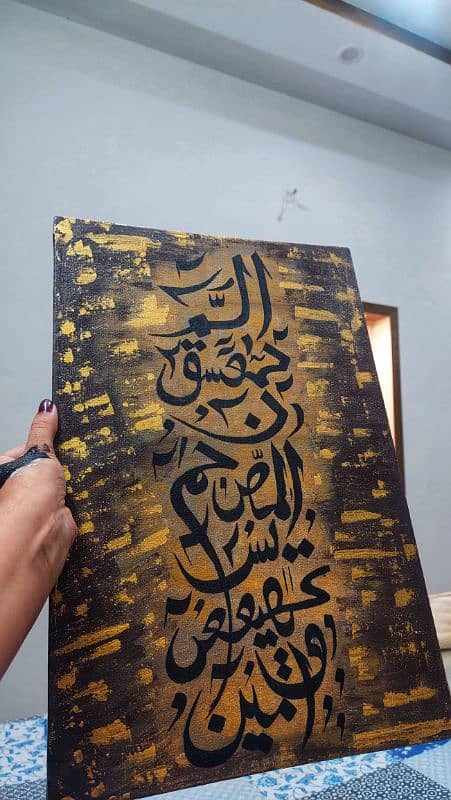 الَمّ
حمعسق
ن
المّص حم
يس
كهيعص